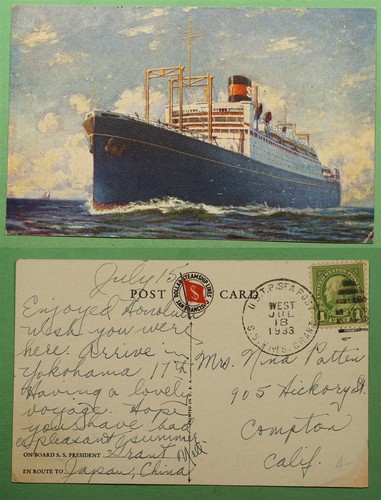 S
July 15
POST CARD
DOLLAR STEAMSHIP LINES
S
SAN FRANCISCO
Enjoyed Honolulu
wish you were
here. Arrive in
Yokohama 17th.
Having a lovely
voyage. Hope
you have had
a pleasant summer
ON BOARD S. S. PRESIDENT Grant
EN ROUTE TO Japan, China
U.S.T.P. SEA POST
WEST
JUL
18
1933
S.S. PRES. GRANT
1
Mrs. Nina Patten
905 Hickory St.
Compton
Calif.